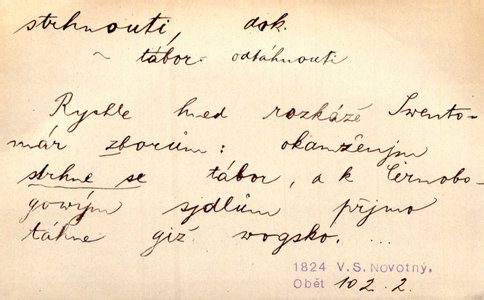 strhnouti, dok.
~ tábor odtáhnouti
Rychle hned rozkáže Swento-
már zborům: okamženjm
strhne se tábor, a k Černobo-
gowým sjdlům přjmo
táhne giž wogsko. ...
1824 V. S. Novotný,
Oběť 102. 2.